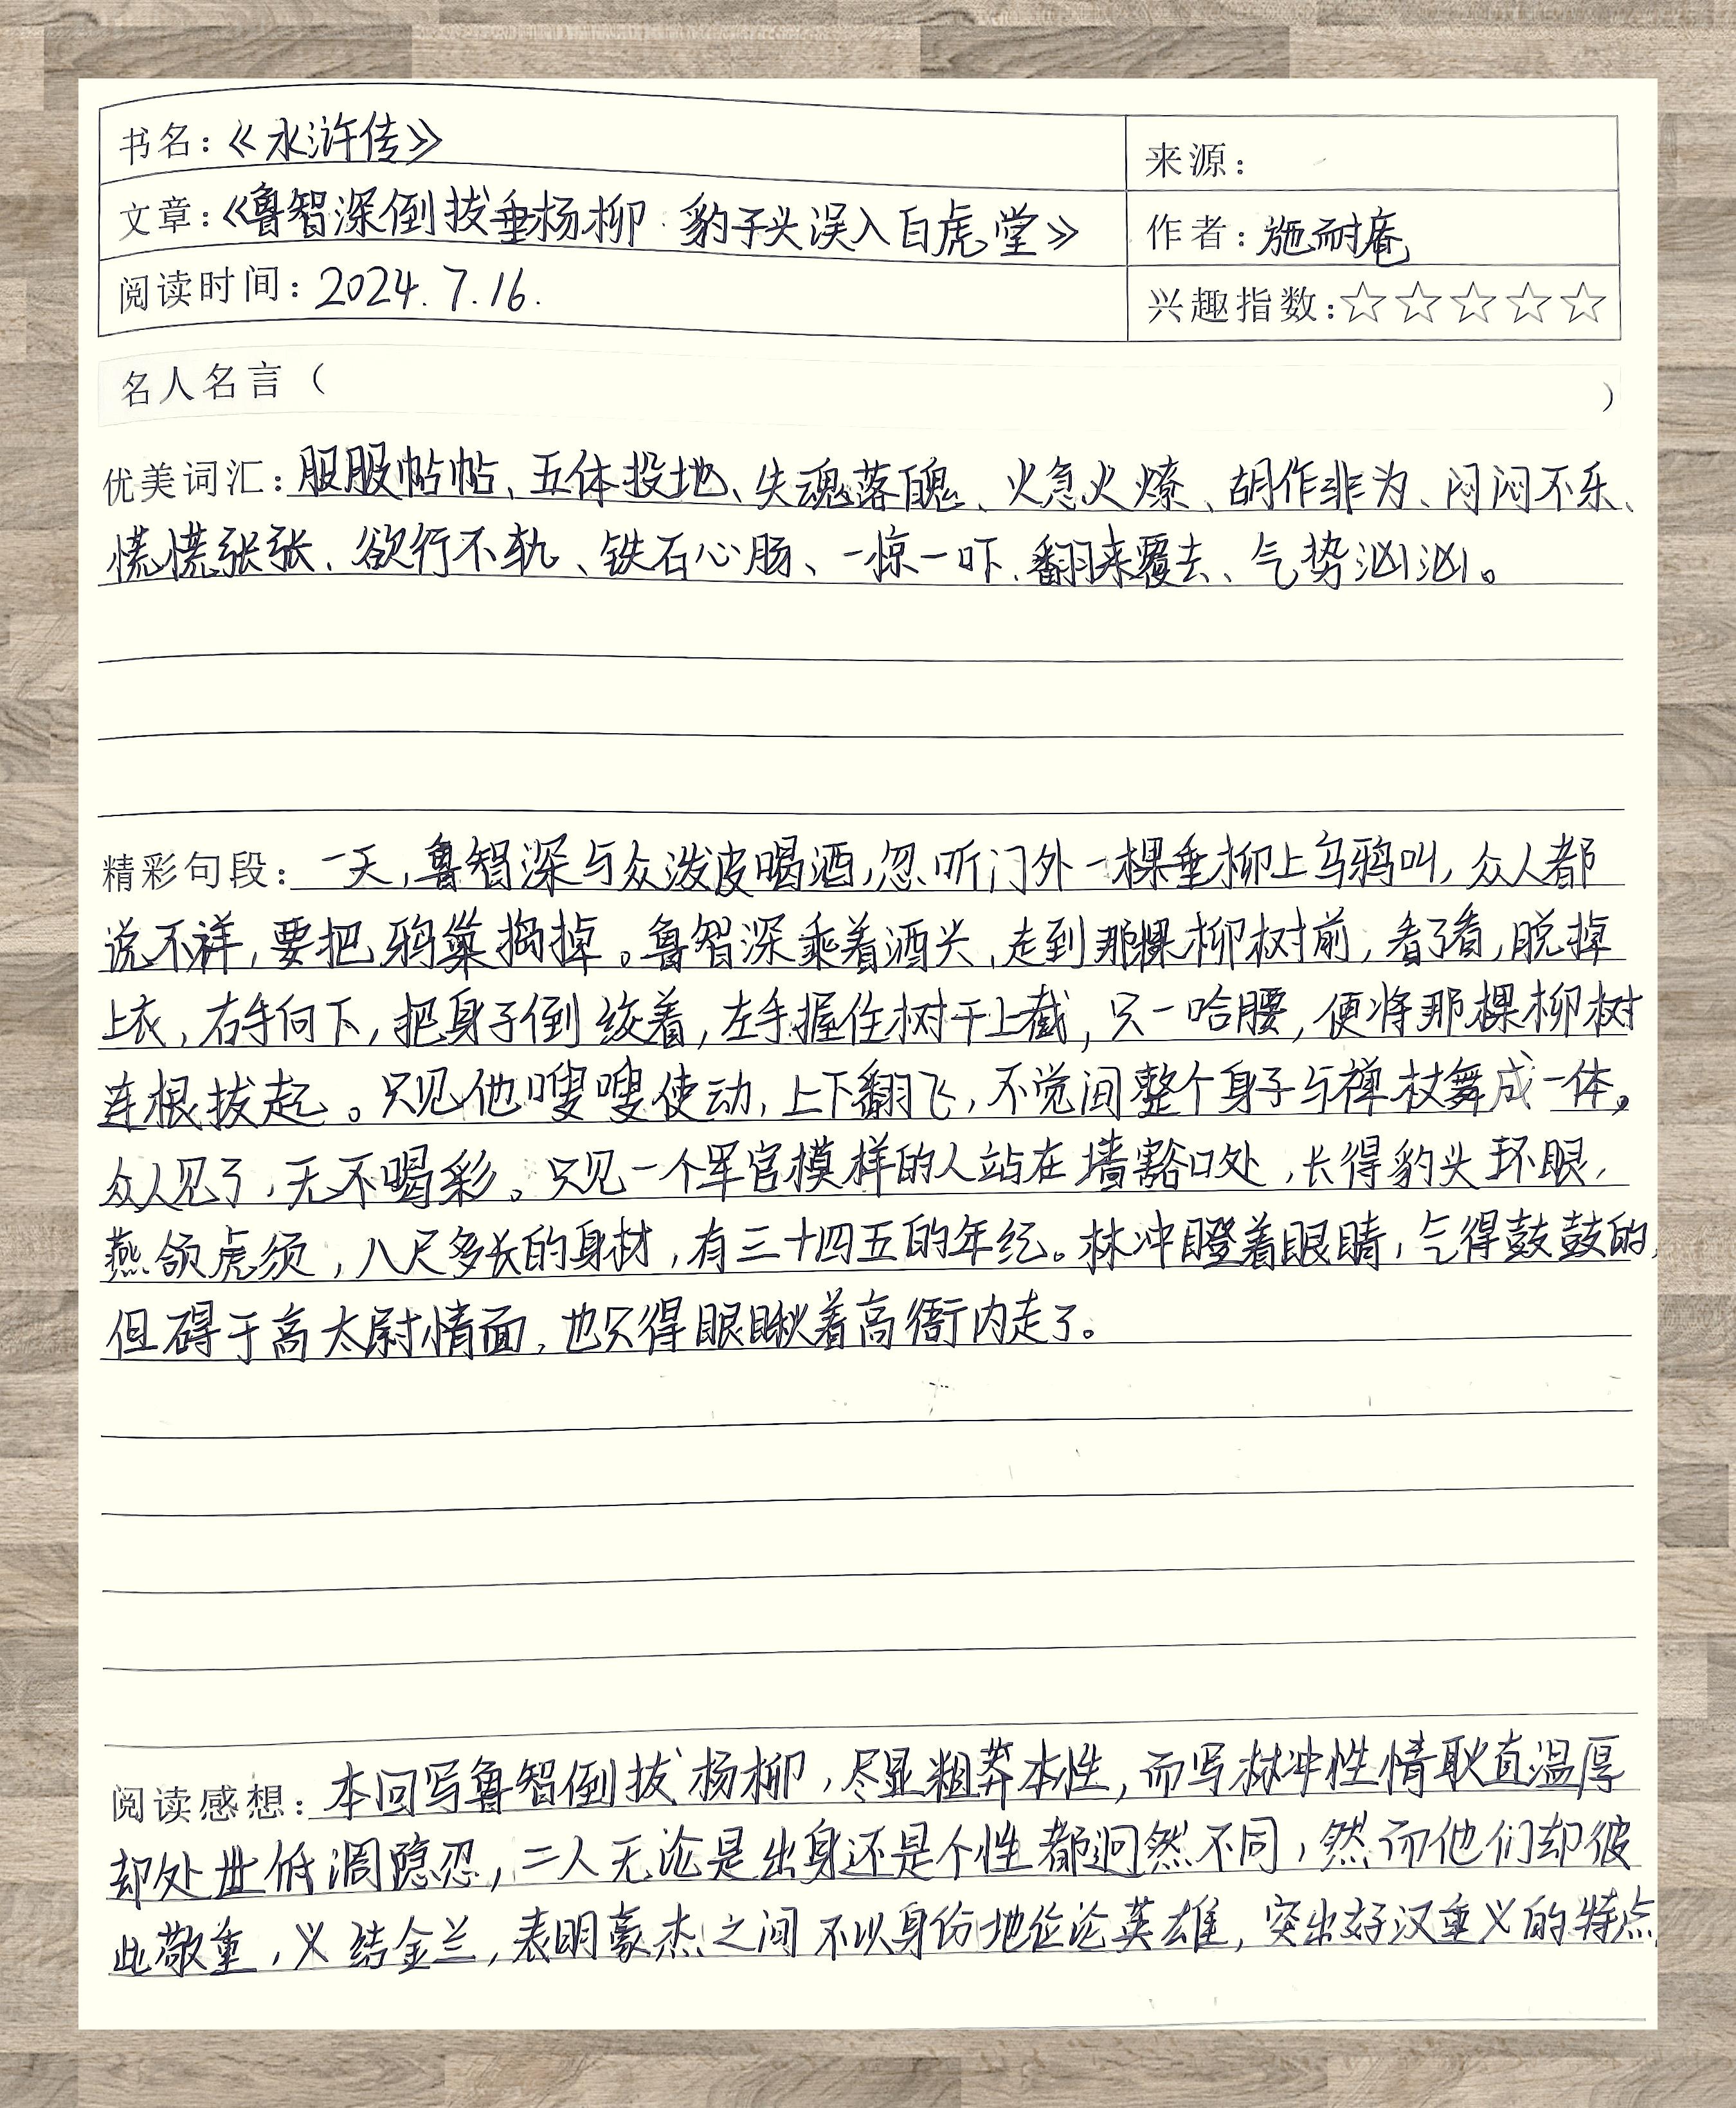 书名：《水浒传》
来源：
文章：《鲁智深倒拔垂杨柳 豹子头误入白虎堂》
作者：施耐庵
阅读时间：2024.7.16.
兴趣指数：☆☆☆☆☆
名人名言（ ）
优美词汇：服服帖帖、五体投地、失魂落魄、火急火燎、胡作非为、闷闷不乐、
慌慌张张、欲行不轨、铁石心肠、一惊一吓、翻来覆去、气势汹汹。
精彩句段：一天，鲁智深与众泼皮喝酒，忽听门外一棵垂柳上乌鸦叫，众人都
说不祥，要把鸦巢捣掉。鲁智深乘着酒兴，走到那棵柳树前，看了看，脱掉
上衣，右手向下，把身子倒绞着，左手握住树干上截，只一哈腰，便将那棵柳树
连根拔起。只见他嗖嗖使动，上下翻飞，不觉间整个身子与禅杖舞成一体。
众人见了，无不喝彩。只见一个军官模样的人站在墙豁口处，长得豹头环眼，
燕颔虎须，八尺多长的身材，有三十四五的年纪。林冲瞪着眼睛，气得鼓鼓的，
但碍于高太尉情面，也只得眼瞅着高衙内走了。
阅读感想：本回写鲁智倒拔杨柳，尽显粗莽本性，而写林冲性情耿直温厚
却处世低调隐忍，二人无论是出身还是个性都迥然不同，然而他们却彼
此敬重，义结金兰，表明豪杰之间不以身份地位论英雄，突出好汉重义的特点